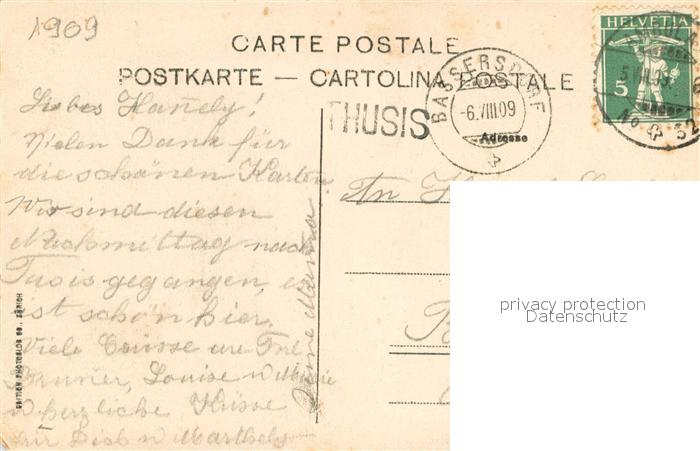 1909
CARTE POSTALE
POSTKARTE — CARTOLINA POSTALE
HELVETIA
5
THUSIS
BASSERSDORF
-6.VIII.09
Adresse
Liebes Hanely!
Vielen Dank für
die schönen Karten.
Wir sind diesen
Nachmittag nach
Tusis gegangen, es
ist schön hier.
Viele Grüsse
Louise
herzliche Küsse
für Dich u Marthely
Deine Mama
An
EDITION PHOTOGLOB Co., ZÜRICH
privacy protection
Datenschutz